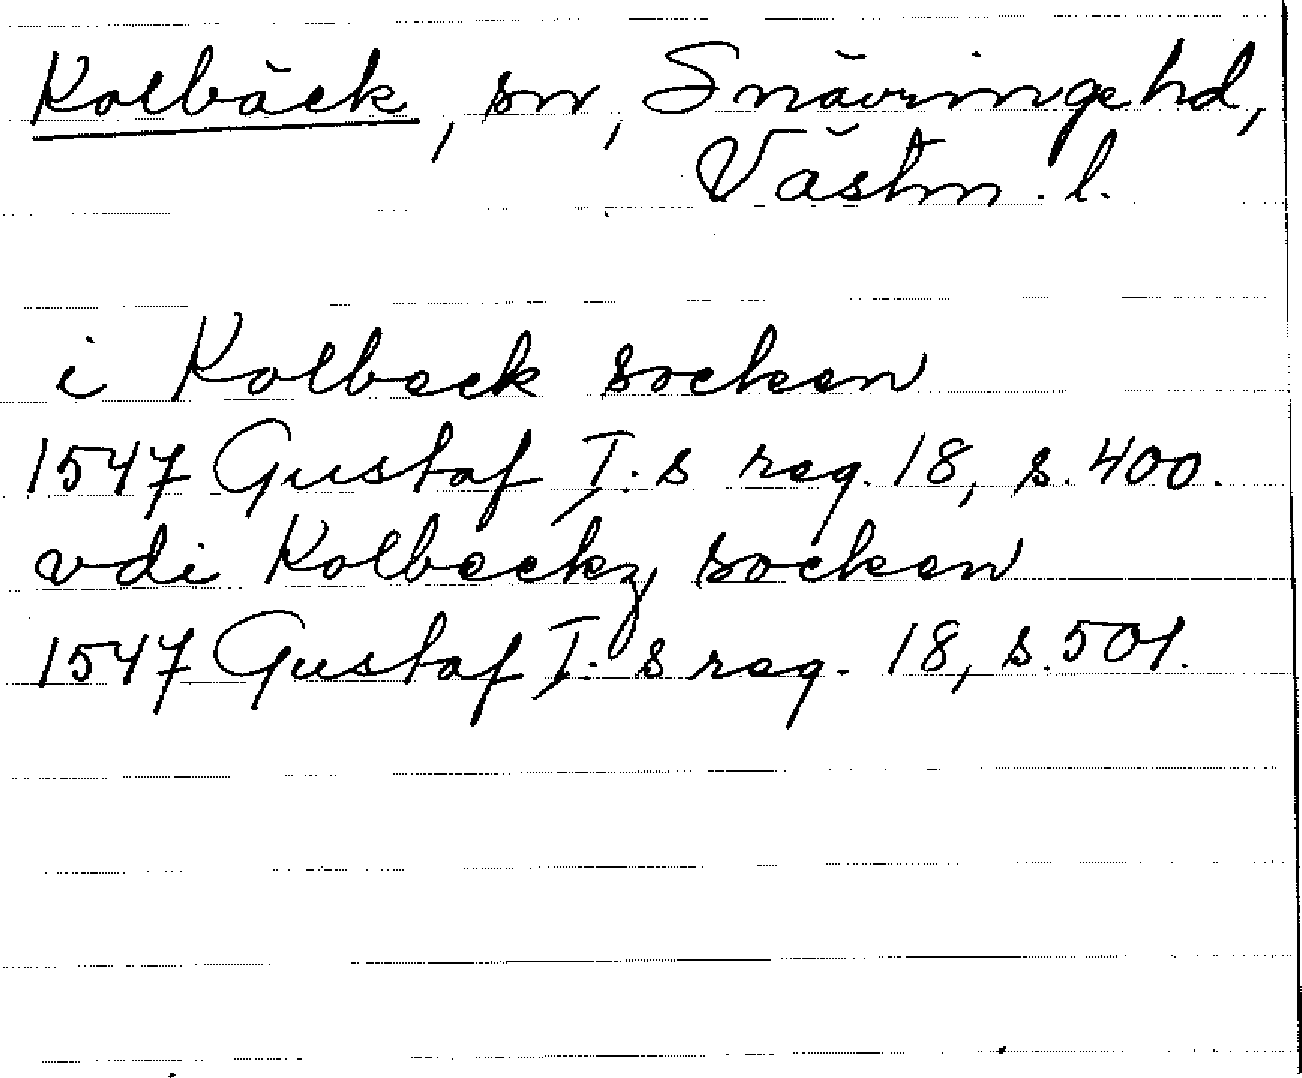 Kolbäck, sn, Snävringe hd,
Västm. l.
i Kolbeck socken
1547 Gustaf I:s reg. 18, s. 400.
vdi Kolbeckz socken
1547 Gustaf I:s reg. 18, s. 501.